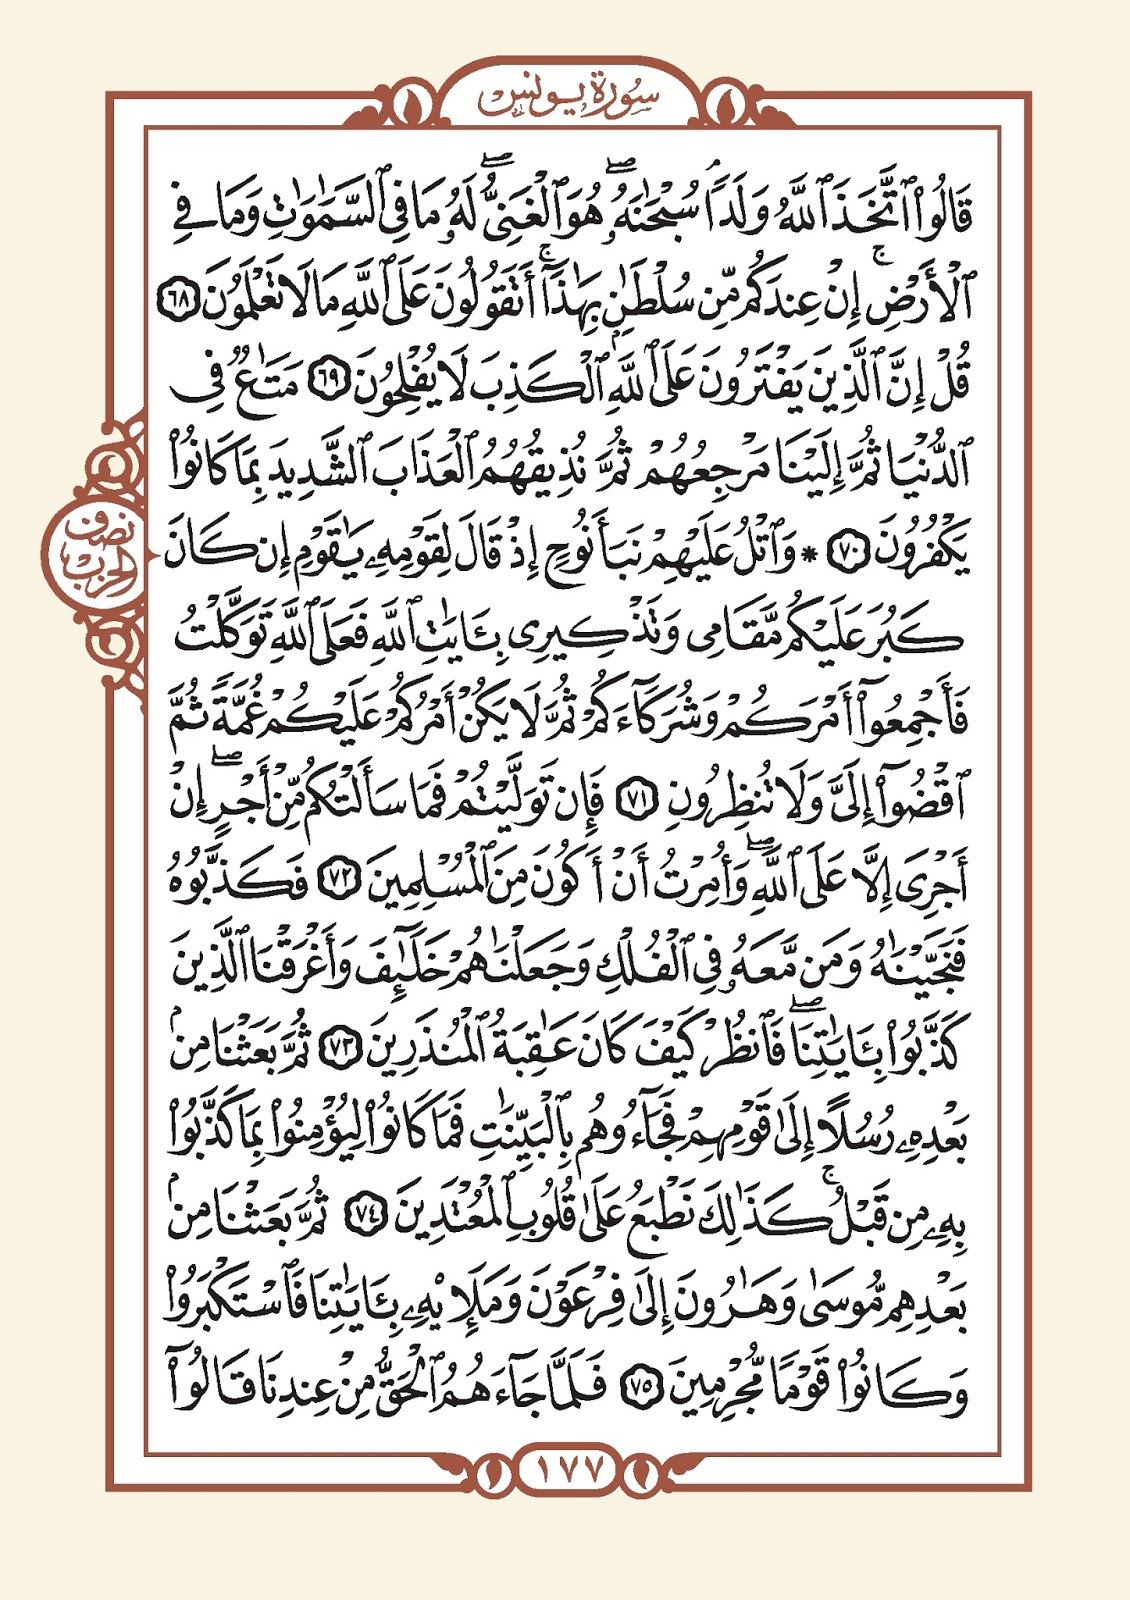 سُورَةُ يُونُسَ
قَالُواْ ٱتَّخَذَ ٱللَّهُ وَلَدٗاۗ سُبۡحَٰنَهُۥۖ هُوَ ٱلۡغَنِيُّۖ لَهُۥ مَا فِي ٱلسَّمَٰوَٰتِ وَمَا فِي
ٱلۡأَرۡضِۚ إِنۡ عِندَكُم مِّن سُلۡطَٰنِۭ بِهَٰذَآۚ أَتَقُولُونَ عَلَى ٱللَّهِ مَا لَا تَعۡلَمُونَ ٦٨
قُلۡ إِنَّ ٱلَّذِينَ يَفۡتَرُونَ عَلَى ٱللَّهِ ٱلۡكَذِبَ لَا يُفۡلِحُونَ ٦٩ مَتَٰعٞ فِي
ٱلدُّنۡيَا ثُمَّ إِلَيۡنَا مَرۡجِعُهُمۡ ثُمَّ نُذِيقُهُمُ ٱلۡعَذَابَ ٱلشَّدِيدَ بِمَا كَانُواْ
يَكۡفُرُونَ ٧٠ * وَٱتۡلُ عَلَيۡهِمۡ نَبَأَ نُوحٍ إِذۡ قَالَ لِقَوۡمِهِۦ يَٰقَوۡمِ إِن كَانَ
نصف الحزب
كَبُرَ عَلَيۡكُم مَّقَامِي وَتَذۡكِيرِي بِـَٔايَٰتِ ٱللَّهِ فَعَلَى ٱللَّهِ تَوَكَّلۡتُ
فَأَجۡمِعُوٓاْ أَمۡرَكُمۡ وَشُرَكَآءَكُمۡ ثُمَّ لَا يَكُنۡ أَمۡرُكُمۡ عَلَيۡكُمۡ غُمَّةٗ ثُمَّ
ٱقۡضُوٓاْ إِلَيَّ وَلَا تُنظِرُونِ ٧١ فَإِن تَوَلَّيۡتُمۡ فَمَا سَأَلۡتُكُم مِّنۡ أَجۡرٍۖ إِنۡ
أَجۡرِيَ إِلَّا عَلَى ٱللَّهِۖ وَأُمِرۡتُ أَنۡ أَكُونَ مِنَ ٱلۡمُسۡلِمِينَ ٧٢ فَكَذَّبُوهُ
فَنَجَّيۡنَٰهُ وَمَن مَّعَهُۥ فِي ٱلۡفُلۡكِ وَجَعَلۡنَٰهُمۡ خَلَٰٓئِفَ وَأَغۡرَقۡنَا ٱلَّذِينَ
كَذَّبُواْ بِـَٔايَٰتِنَاۖ فَٱنظُرۡ كَيۡفَ كَانَ عَٰقِبَةُ ٱلۡمُنذَرِينَ ٧٣ ثُمَّ بَعَثۡنَا مِنۢ
بَعۡدِهِۦ رُسُلًا إِلَىٰ قَوۡمِهِمۡ فَجَآءُوهُم بِٱلۡبَيِّنَٰتِ فَمَا كَانُواْ لِيُؤۡمِنُواْ بِمَا كَذَّبُواْ
بِهِۦ مِن قَبۡلُۚ كَذَٰلِكَ نَطۡبَعُ عَلَىٰ قُلُوبِ ٱلۡمُعۡتَدِينَ ٧٤ ثُمَّ بَعَثۡنَا مِنۢ
بَعۡدِهِم مُّوسَىٰ وَهَٰرُونَ إِلَىٰ فِرۡعَوۡنَ وَمَلَإِيْهِۦ بِـَٔايَٰتِنَا فَٱسۡتَكۡبَرُواْ
وَكَانُواْ قَوۡمٗا مُّجۡرِمِينَ ٧٥ فَلَمَّا جَآءَهُمُ ٱلۡحَقُّ مِنۡ عِندِنَا قَالُوٓاْ
١٧٧